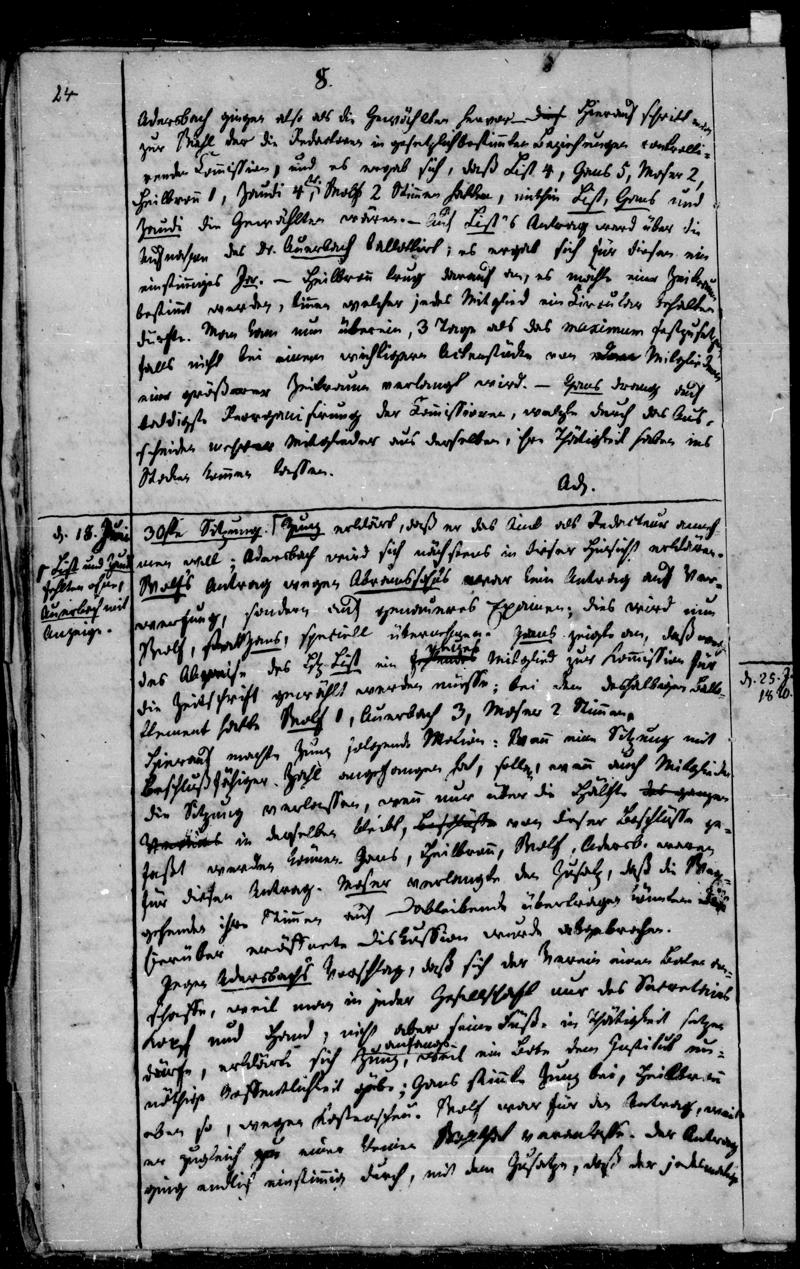 24
8.
Adersbach gingen also als die Gewählten hervor. Hierauf schritt man
zur Wahl der die Redactoren in gesetzlichbestimmten Beziehungen controlli-
renden Comission, und es ergab sich, daß List 4, Gans 5, Moser 2,
Heilbronn 1, Jaudi 4, Wolf 2 Stimmen hatten, mithin List, Gans und
die Gewählten wären. – Auf List's Antrag ward über die
Aufnahme des Dr. Auerbach ballottirt; es ergab sich für diesen ein
einstimmiges Ja. – Heilbronn trug darauf an, es möchte eine Zeitraum
bestimt werden, binnen welcher jedes Mitglied ein Circular behalten
dürfte. Man kam nun überein, 3 Tage als das maximum festzusetzen
falls nicht bei einem wichtigern Actenstücke von Mitgliedern
ein größerer Zeitraum verlangt wird. – Gans drang auf
baldigste Reorganisirung der Comissionen, welche durch das Aus-
scheiden mehrerer Mitglieder aus derselben, ihre Thätigkeit haben ins
Stocken kommen lassen.
Ads.
d. 18. Juni
List und
fehlten ohne,
Auerbach mit
Anzeige.
30ste Sitzung. Zunz erklärt, daß er das Amt als Redacteur anneh-
men will; Adersbach wird sich nächstens in dieser Hinsicht erklären.
Wolfs Antrag wegen war kein Antrag auf Ver-
werfung, sondern auf genaueres Examen; dies wird nun
Wolf, statt Gans, speciell übernehmen. Gans zeigte an, daß wegen
des Abgangs des List ein neues Mitglied zur Kommission für
die Zeitschrift gewählt werden müsse; bei dem deshalbigen Ballo-
tement hatte Wolf 1, Auerbach 3, Moser 2 Stimmen.
Hierauf machte Zunz folgende Motion: Wenn eine Sitzung mit
beschlußfähiger Zahl angefangen hat, sollen, wenn auch Mitglieder
die Sitzung verlassen, wenn nur über die Hälfte des ganzen
Vereins in derselben bleibt, Beschlüsse von dieser Beschlüsse ge-
faßt werden können. Gans, Heilbronn, Wolf, Adersb. waren
für diesen Antrag. Moser verlangte den Zusatz, daß die Weg-
gehenden ihre Stimmen auf Dableibende übertragen könnten. Die
hierüber eröffnete Diskussion wurde abgebrochen.
Gegen Adersbachs Vorschlag, daß sich der Verein einen Boten an-
schaffe, weil man in jeder Gesellschaft nur des Secretairs
Kopf und Hand, nicht aber seine Füße in Thätigkeit setzen
dürfe, erklärte sich anfangs Zunz, weil ein Bote dem Institut un-
nöthige Oeffentlichkeit gäbe; Gans stimmte Zunz bei, Heilbronn
eben so, wegen Kostenscheu. Wolf war für den Antrag, weil
er zugleich zu einer veranlaßte. Der Antrag
ging endlich einstimmig durch, mit dem Zusatze, daß der jedesmalige
d. 25. J.